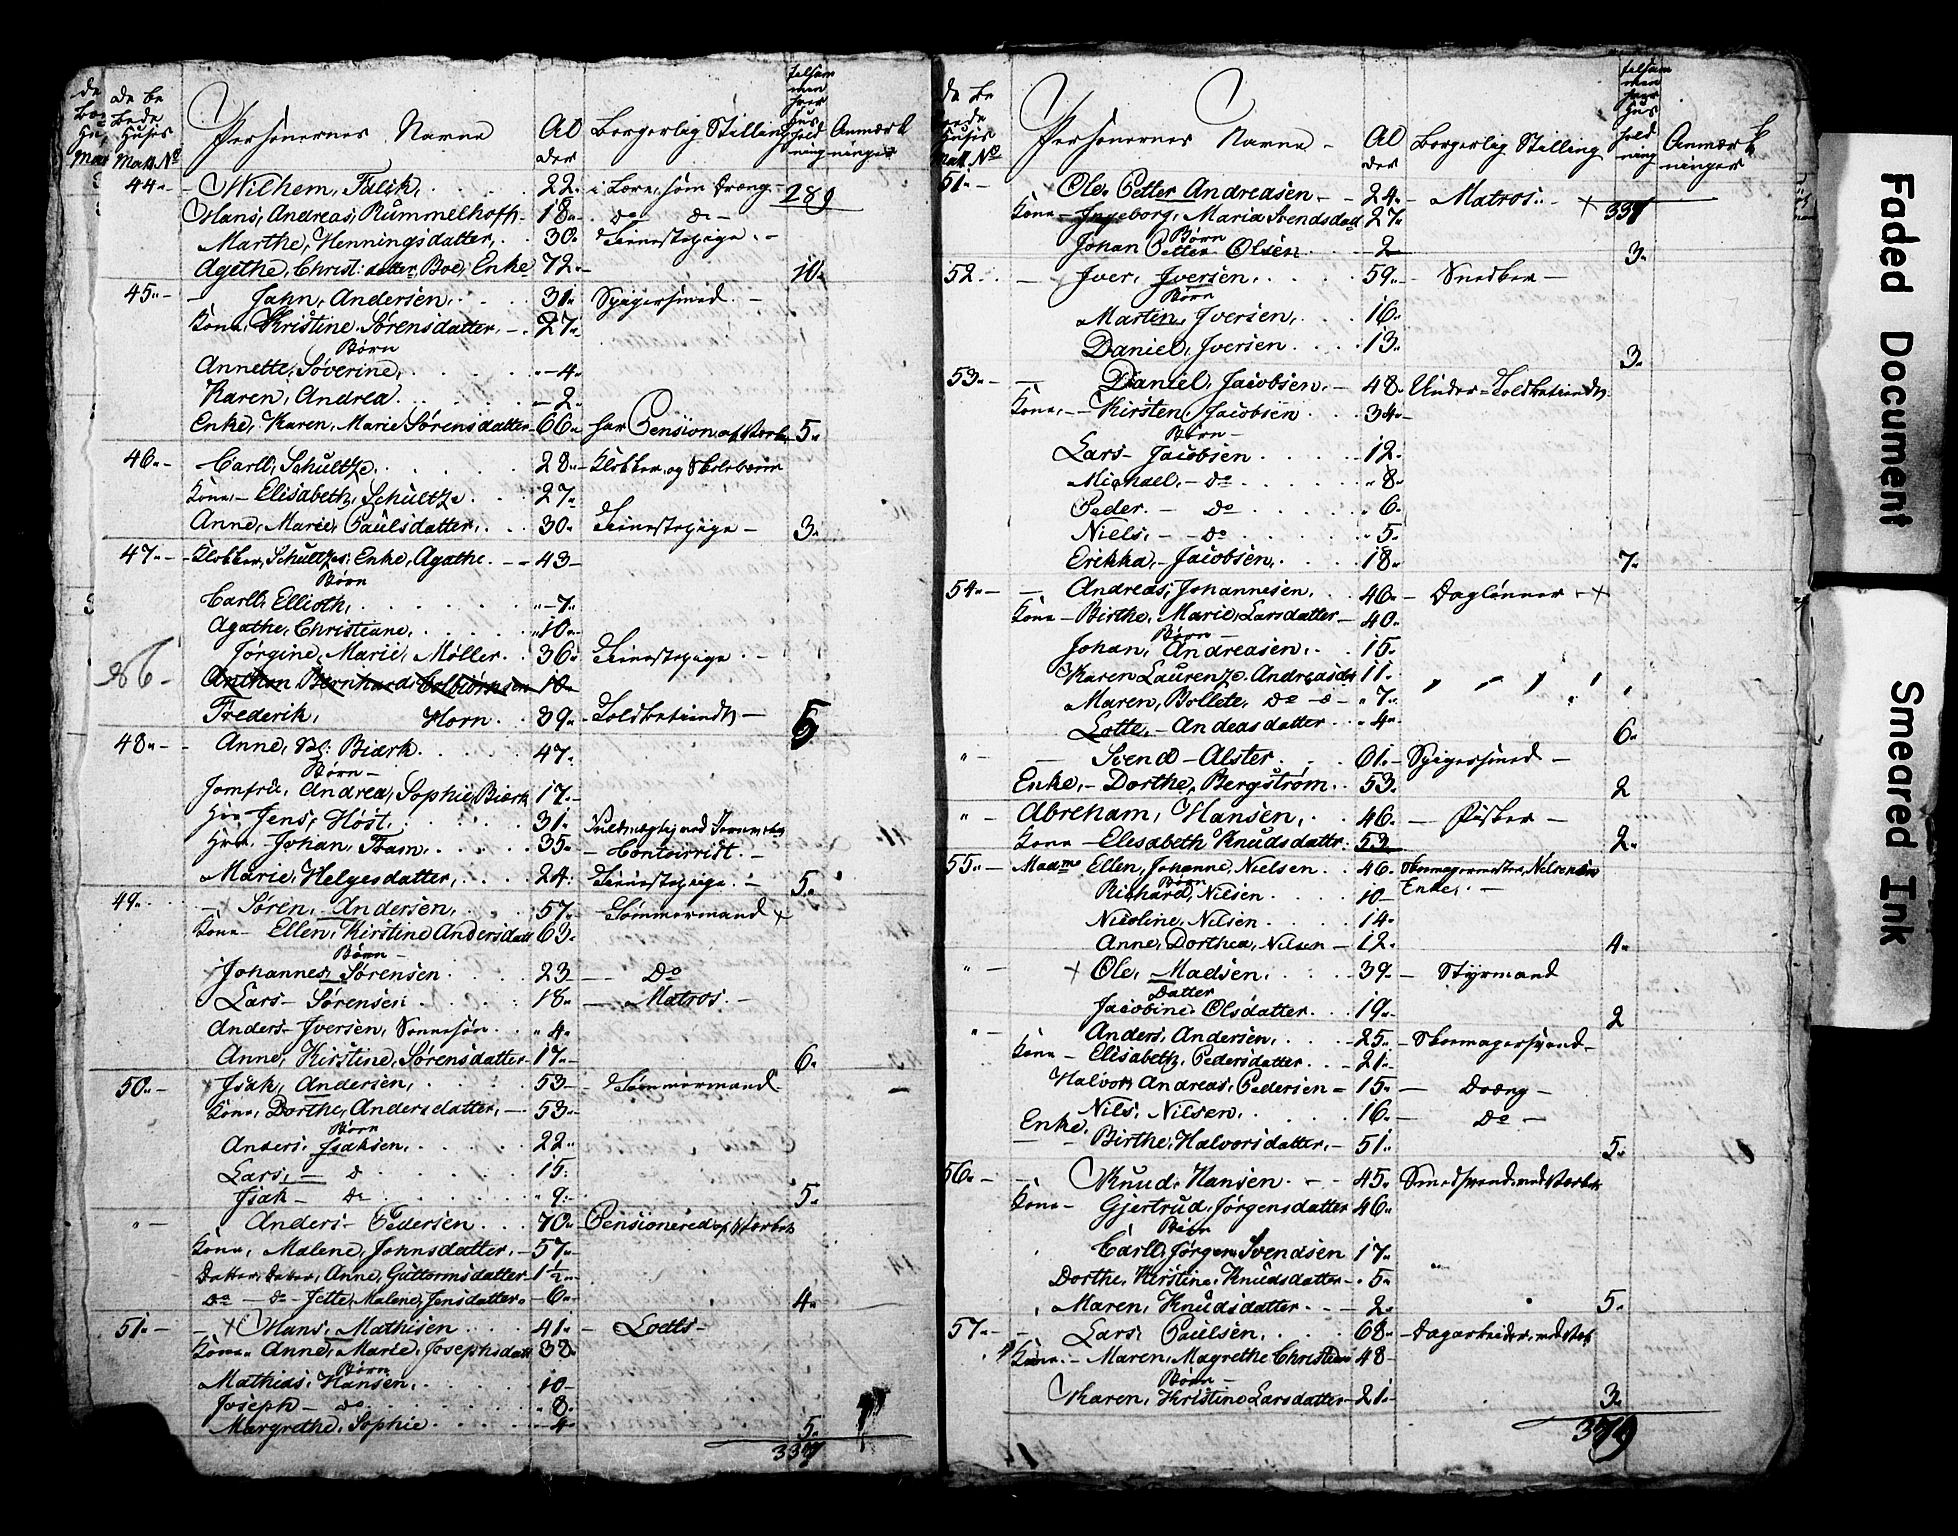 de be
boede
Huses
Matt No
Personernes Navne
Al
der
Borgerlig Stilling
tilsam
men
hver
Hus
hold
ning
Anmærk
ninger
44 - Wilhem Falik 22 i Lære som dreng 289
Hans Andreas Rummelhoff 18 do do
Marthe Henningsdatter 30 Tienestepige
Agethe Christ: datter Boe, Enke 72 10
45 - Jahn Andersen 31 Spigersmed
Kone, Kristine Sørensdatter 27
Børn
Annette Søverine 4
Karen Andrea 2
Enke, Karen Marie Sørensdatter 66 har Pension af Værket 5
46 - Carll Schultze 28 Klokker og Skolelærer
Kone - Elisabeth Schultze 27
Anne Marie Paulsdatter 30 Tienestepige 3
47 - Klokker Schultzes Enke, Agathe 43
Børn
Carll Ellioth 7
Agathe Christiane 10
Jørgine Marie Møller 36 Tienestepige
Anthon Bernhard 10
Frederik Horn 39 Toldbetient 5
48 - Anne Biørk 47
Børn
Jomfru Andrea Sophie Biørk 17
Hr Jens Høst 31
Hr Johan Tham 35 Contoirist
Marie Helgesdatter 24 Tienestepige 5
49 Søren Andersen 57 Tømmermand x
Kone Ellen Kirstine Andersdatt 63
Børn
x Johannes Sørensen 23 Do
Lars Sørensen 18 Matros
Anders Iversen, Sønnesøn 4
Anne Kirstine Sørensdatter 17 6
50 x Isak Andersen 53 Tømmermand
Kone, Dorthe Andersdatter 53
Børn
Anders Isaksen 22
Lars - d 15
Isak - do 9 5
" - Anders Pedersen 70 Pensionered af Værket
Kone, Malene Johnsdatter 57
Datter Datter, Anne Guttormsdatter 1½
Do - do - Jette Malene Jensdatter 6 4
51 - x Hans Mathisen 41 Lods
Kone Anne Marie Josephsdatt 38
Børn
Mathias Hansen 10
Joseph - do 8
Margrethe Sophie 4 5
337
de be
boede
Huses
Matt No
Personernes Navne
Al
der
Borgerlig Stilling
tilsam
men
hver
Hus
hold
ning
Anmærk
ninger
51 - Ole Petter Andreasen 24 Matros x 337
Kone - Ingeborg Maria Svendsdat 27
Børn
Johan Petter Olsen 2 3
52 - Iver Iversen 59 Snedker
Børn
Marten Iversen 16
Daniel Iversen 13 3
53 - Daniel Jacobsen 48 Under-Toldbetient
Kone - Kirsten Jacobsen 34
Børn
Lars Jacobsen 12
Michael - do 8
Peder - Do 6
Niels - do 5
Erikka Jacobsen 18 7
54 - Andreas Johannesen 46 Daglønner x
Kone - Birthe Marie Larsdatter 40
Børn
Johan Andreasen 15
Karen Laurenze Andreasdat 11
Maren Bollete do - d 7
Lotte - Andeasdatter 4 6
" - Svend Alster 61 Spigersmed
Enke - Dorthe Bergstrøm 53 2
" - Abreham Hansen 46 Fisker
Kone - Elesabeth Knudsdatter 53 2
55 - Madme Ellen Johanne Nielsen 46 Skomagermester Nilsens
Enke
Børn
Richard Nilsen 10
Nicoline Nilsen 14
Anne Dorthea Nilsen 12 4
" - x Ole Madsen 39 Styrmand
Datter
Jacobine Olsdatter 19 2
" - Anders Andersen 25 Skomagersvend
Kone - Elisabeth Pedersdatter 21
Halvor Andreas Pedersen 15 Dreng
Nils Nilsen 16 Do
Enke
Birthe Halvorsdatter 51 5
56 - Knud Hansen 45 Smedsvend ved Værket
Kone - Gjertrud Jørgensdatter 46
Børn
Carll Jørgen Svendsen 17
Dorthe Kirstine Knudsdatter 5
Maren Knudsdatter 2 5
57 - Lars Paulsen 68 Dagarbeider ved
Kone - Maren Magrethe 48
Børn
Karen Kristine Larsdatter 21 3
379
Faded Document
Smeared Ink